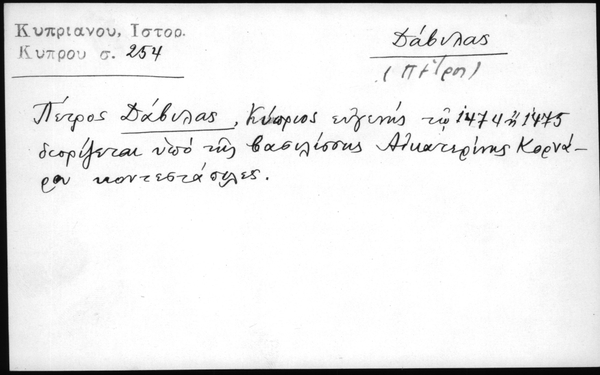 Κυπριανου, Ιστορ.
Κυπρου σ. 254
Δάβιλας
(Πέτρος)
Πέτρος Δάβιλας, Κύπριος εὐγενής τῷ 1474 ἢ 1475
διορίζεται ὑπό τῆς βασιλίσσης Αἰκατερίνης Κορνά-
ρου κοντεστάπιλες.